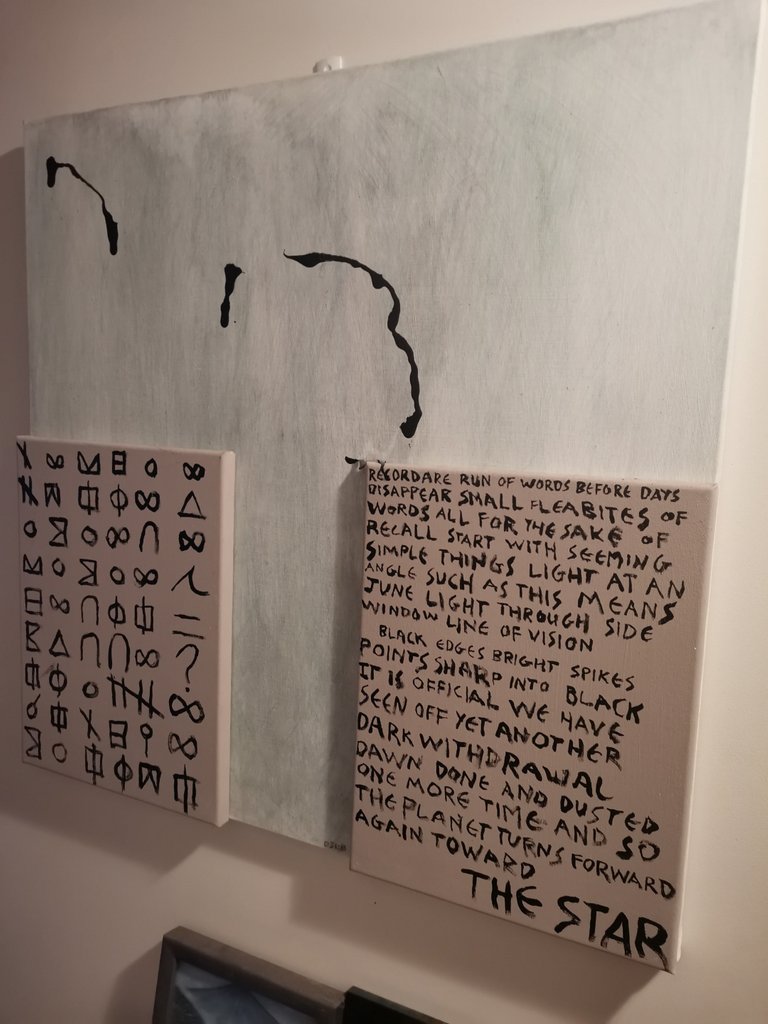 RECORDARE RUN OF WORDS BEFORE DAYS
DISAPPEAR SMALL FLEABITES OF
WORDS ALL FOR THE SAKE OF
RECALL START WITH SEEMING
SIMPLE THINGS LIGHT AT AN
ANGLE SUCH AS THIS MEANS
JUNE LIGHT THROUGH SIDE
WINDOW LINE OF VISION
BLACK EDGES BRIGHT SPIKES
POINTS SHARP INTO BLACK
IT IS OFFICIAL WE HAVE
SEEN OFF YET ANOTHER
DARK WITHDRAWAL
DAWN DONE AND DUSTED
ONE MORE TIME AND SO
THE PLANET TURNS FORWARD
AGAIN TOWARD
THE STAR